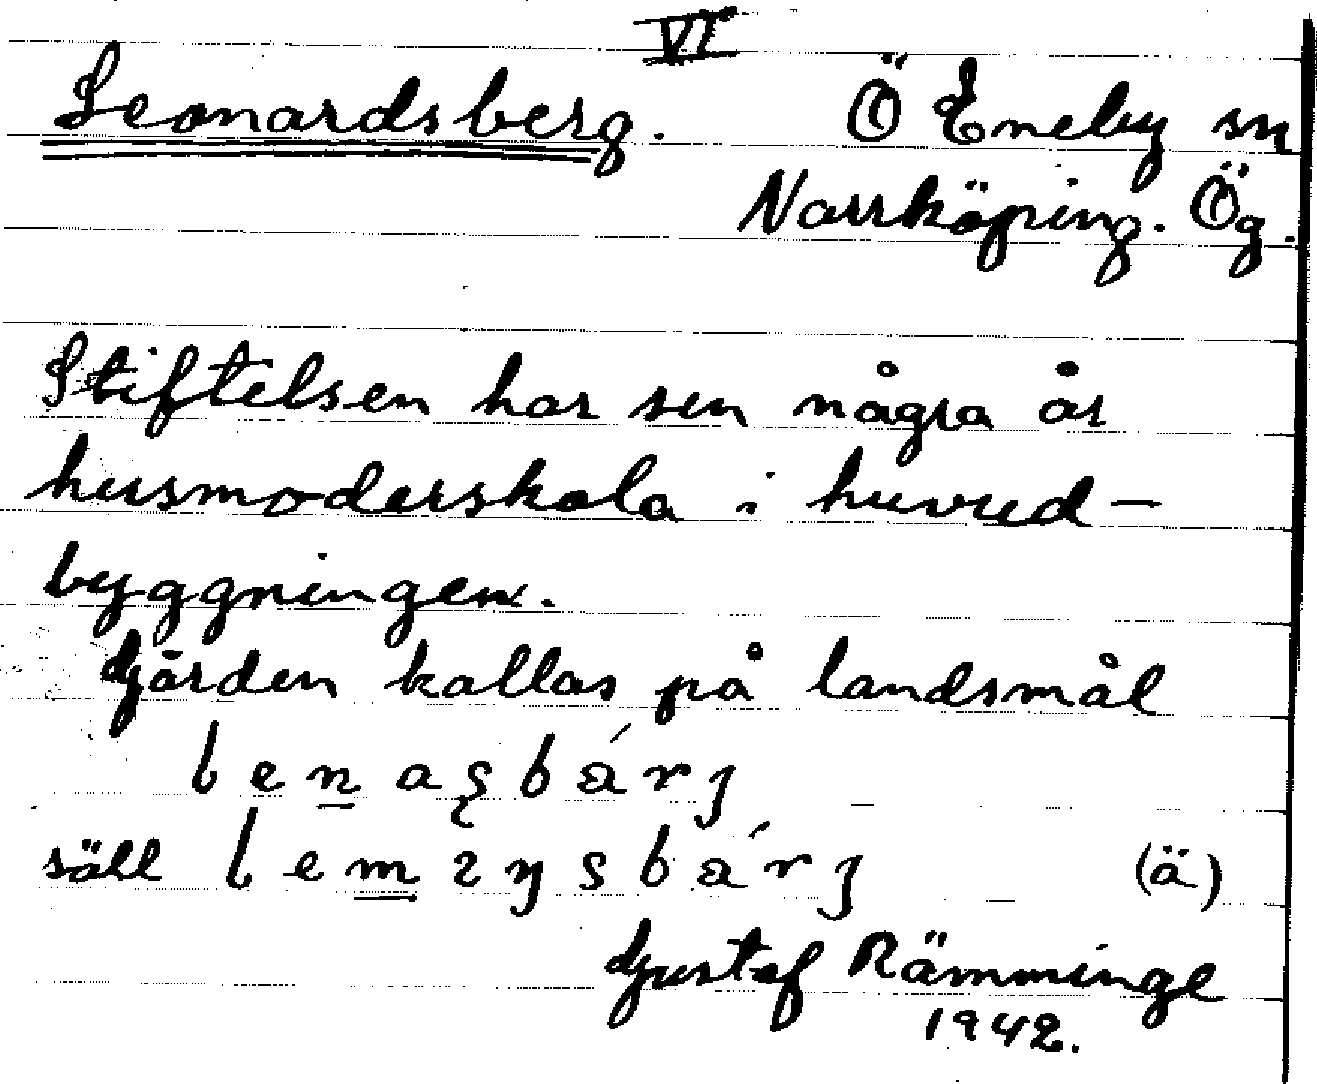 VI
Leonardsberg. Ö Eneby sn
Norrköping. Ög.
Stiftelsen har sen några år
husmoderskola i huvud-
byggningen.
Gården kallas på landsmål
lenaʂbárȷ
säll (ä)
Gustef Rämminge
1942.